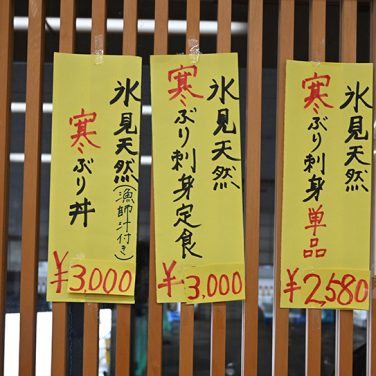 氷見天然
寒ぶり丼
(漁師汁付き)
¥3,000
氷見天然
寒ぶり刺身定食
¥3,000
氷見天然
寒ぶり刺身単品
¥2,580